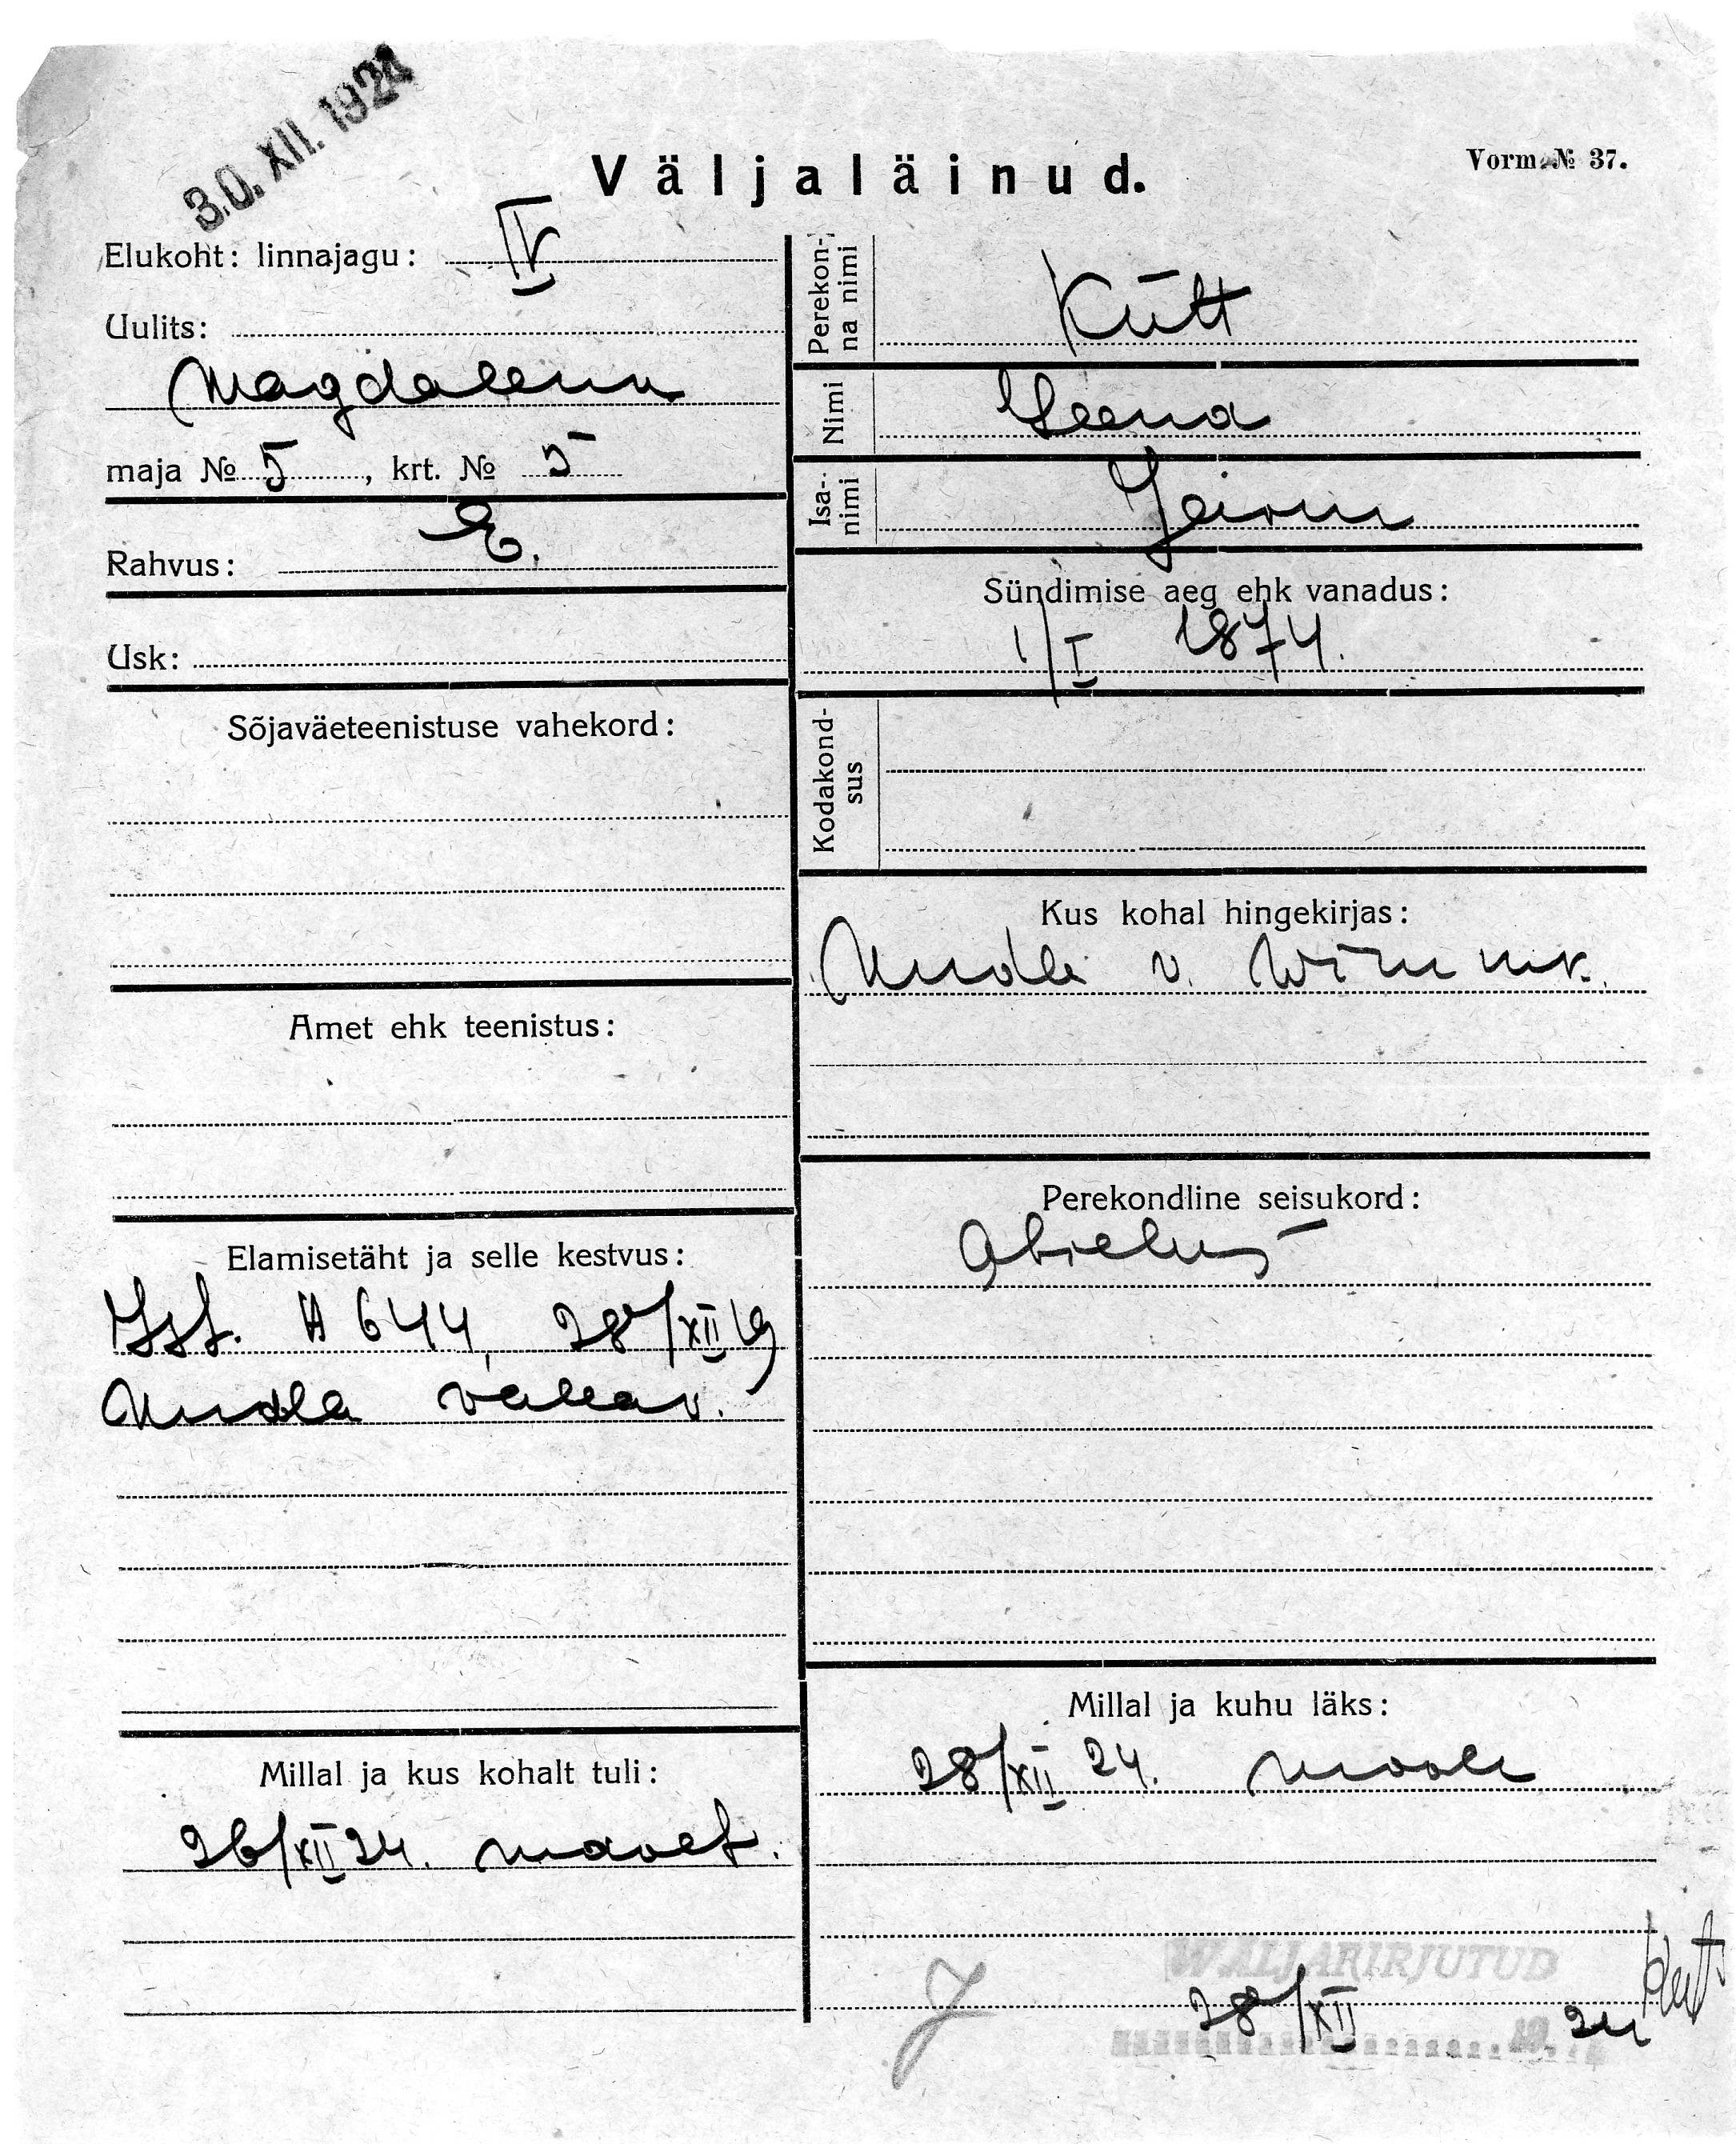 30. XII. 1924
Väljaläinud.
Vorm. № 37.
Elukoht: linnajagu: IV
Uulits:
Magdaleena
maja № 5, krt. № 5
Rahvus: E.
Usk:
Sõjaväeteenistuse vahekord:
Amet ehk teenistus:
Elamisetäht ja selle kestvus:
Ist. A 644, 28/XII 19
vallav.
Millal ja kus kohalt tuli:
26/XII 24. maalt.
Perekon-
na nimi
Kütt
Nimi
Leena
Isa-
nimi
Sündimise aeg ehk vanadus:
1/I 1874.
Kodakond-
sus
Kus kohal hingekirjas:
v.
Perekondline seisukord:
Abielus
Millal ja kuhu läks:
28/XII 24. maale
WÄLJAKIRJUTUD
28/XII 24